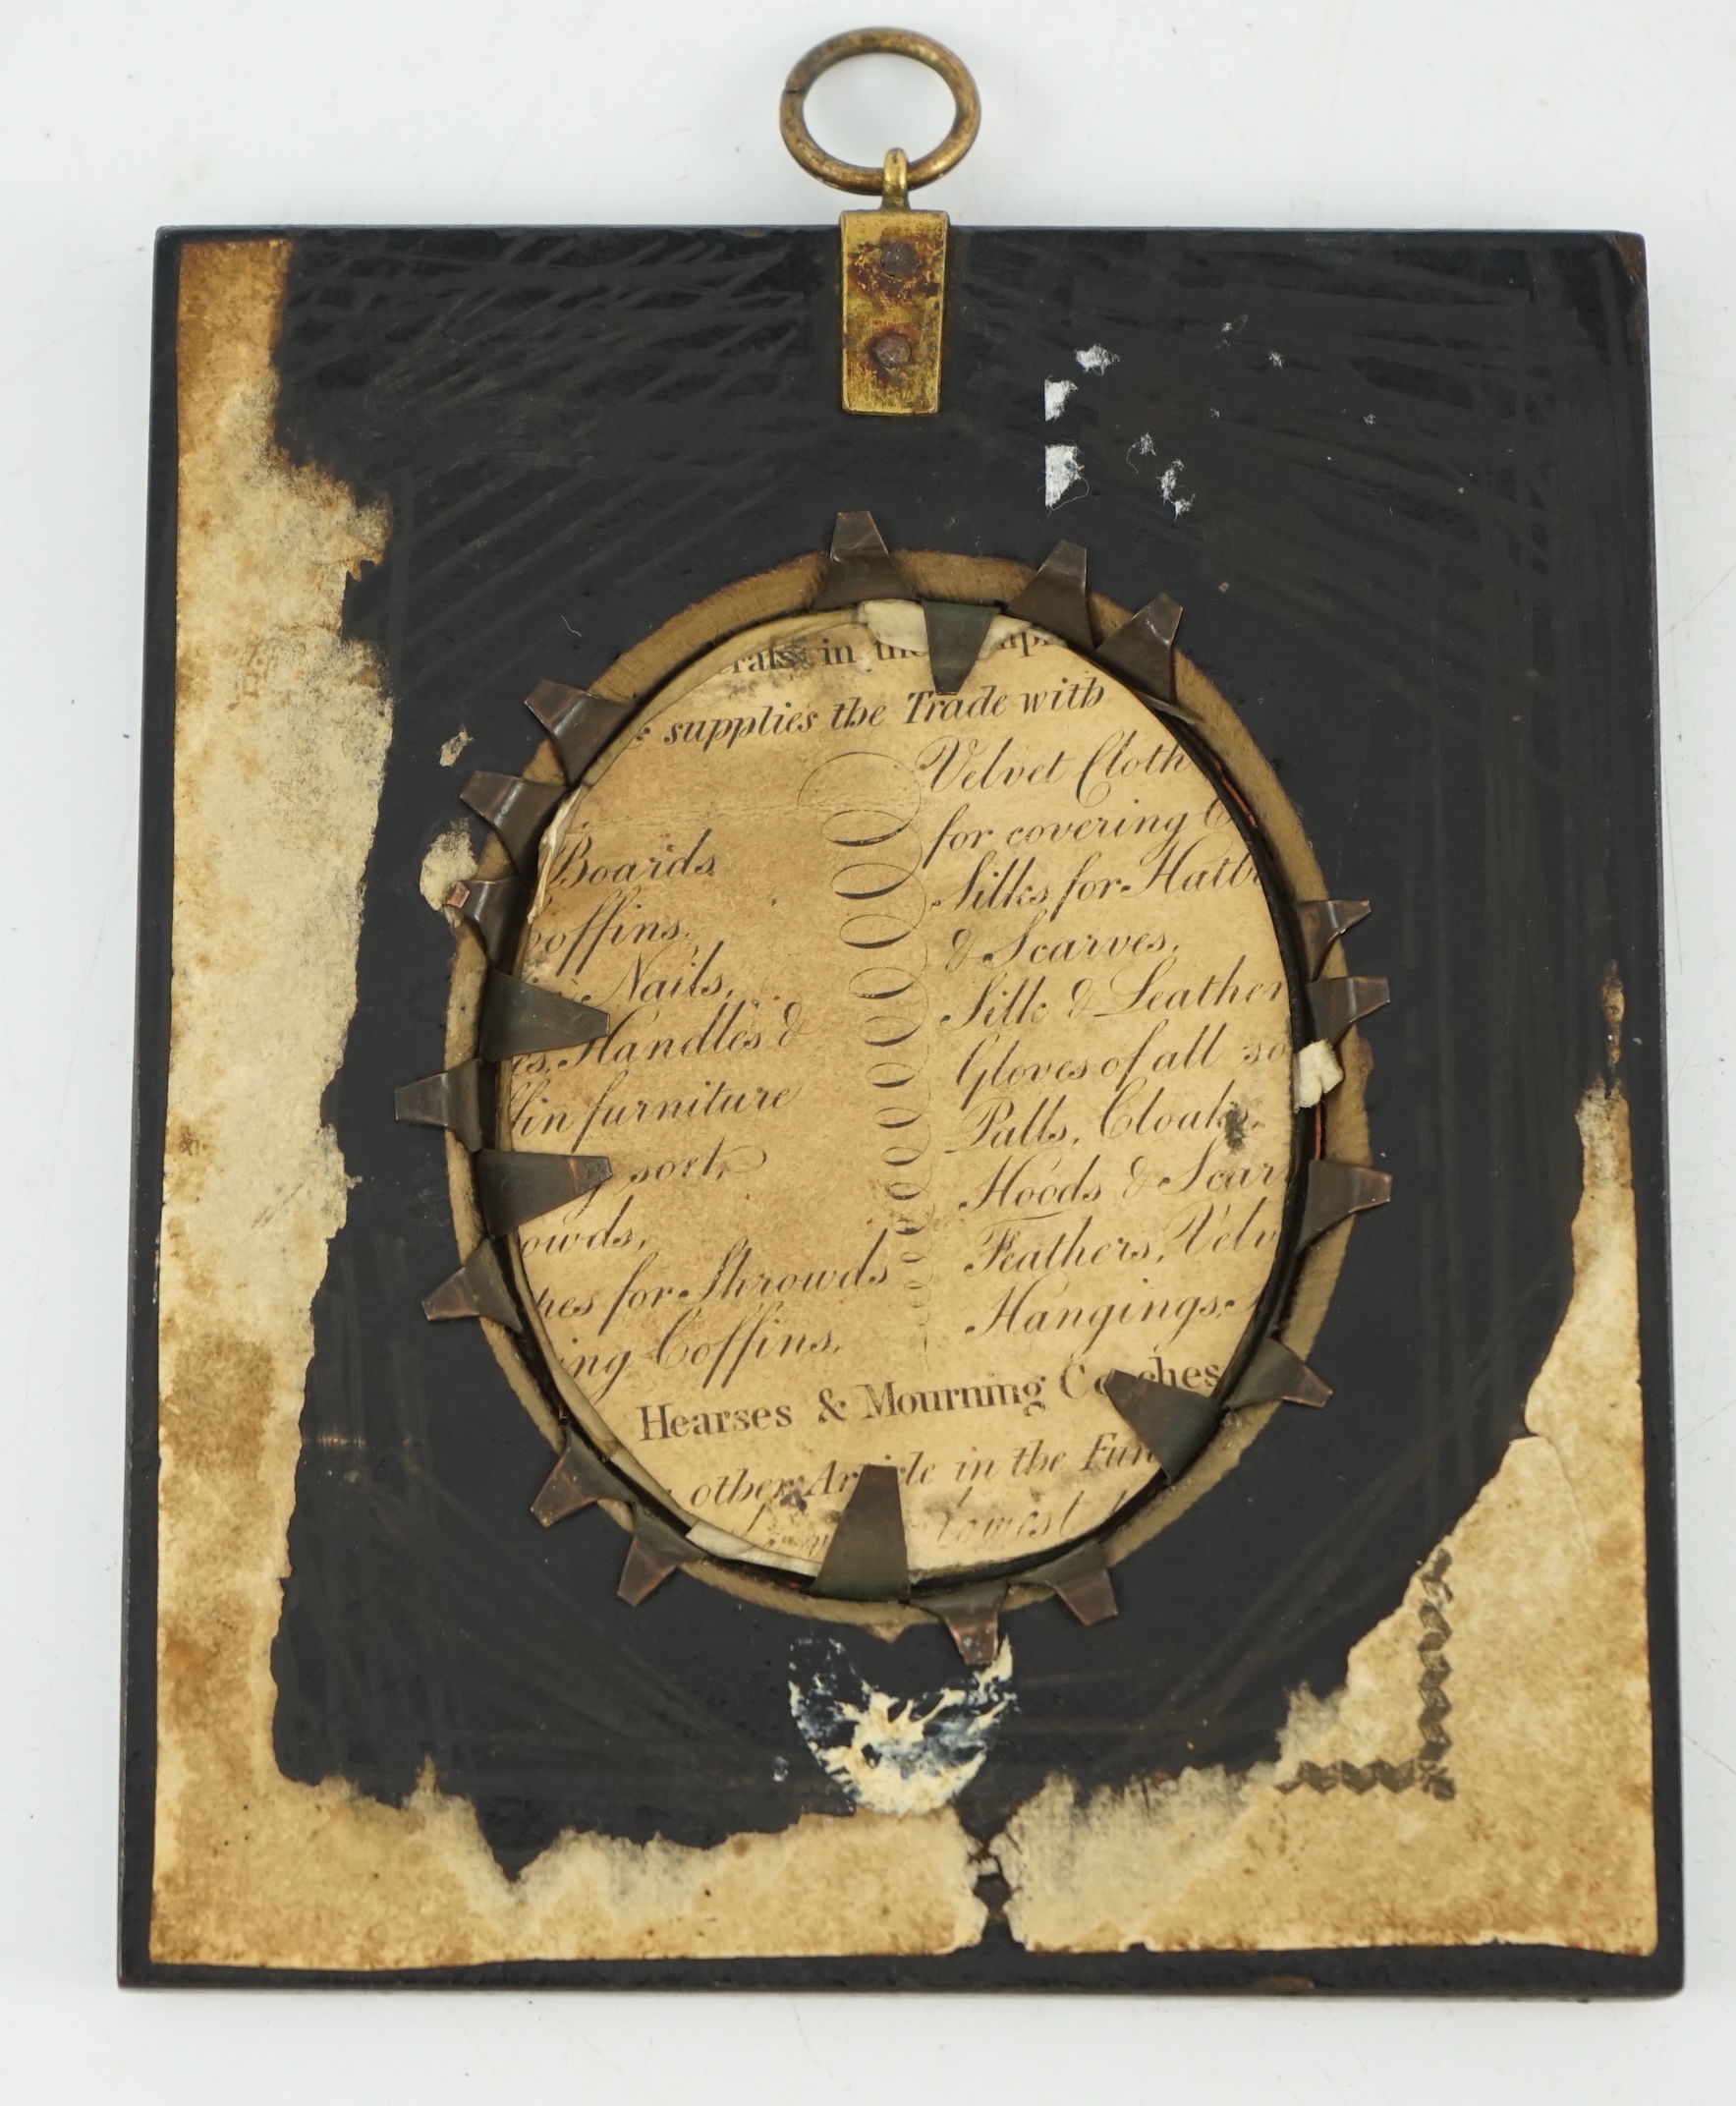 in
supplies the Trade with
Boards
offins.
Nails,
es, Handles &
fin furniture
sort,
owds,
hes for Shrowds
ing Coffins,
Velvet Cloth
for covering
Silks for Hatb
& Scarves,
Silk & Leather
Gloves of all so
Palls, Cloaks,
Hoods & Scar
Feathers, Velv
Hangings,
Hearses & Mourning Coaches
other Article in the Fun
Lowest